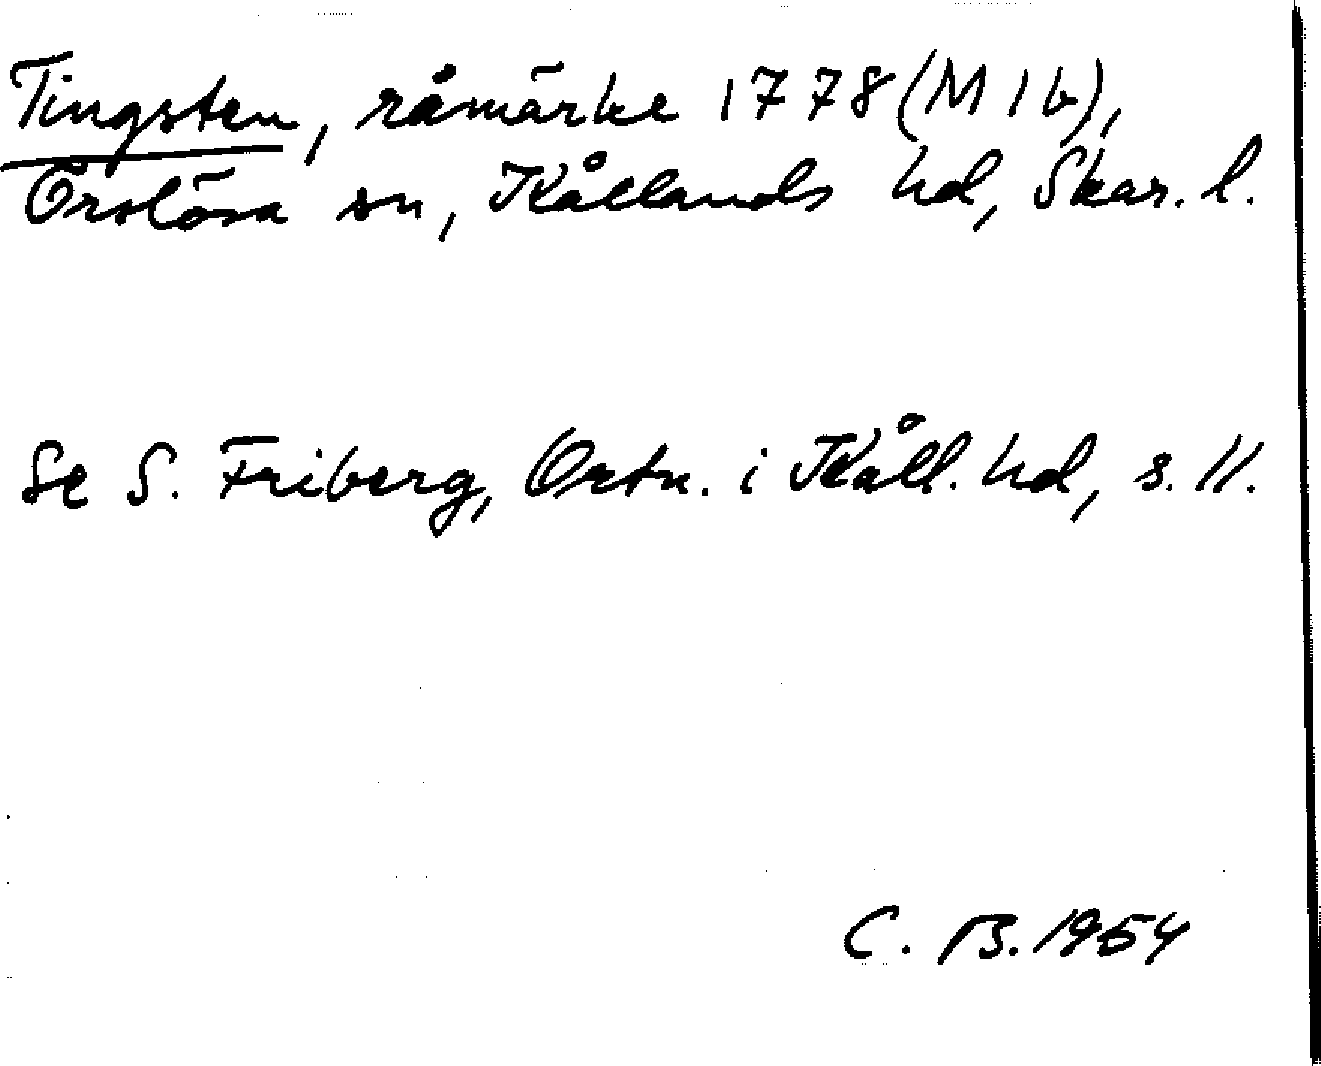 Tingsten, råmärke 1778 (M 1 b),
Örslösa sn, Kållands hd, Skar. l.
Se S. Friberg, Ortn. i Kåll. hd, s. 11.
C. B. 1954